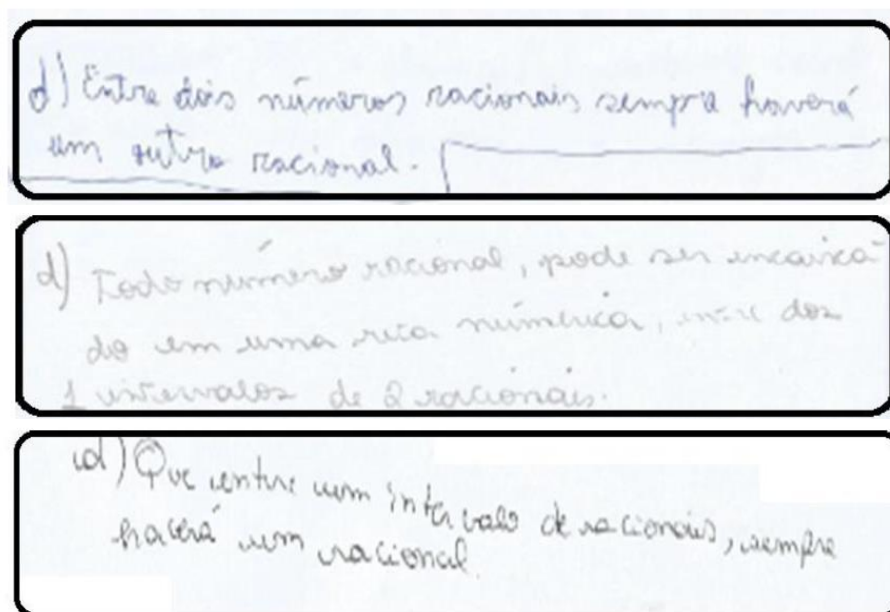 d) Entre dois números racionais sempre haverá
um outro racional.
d) Todo número racional, pode ser encaixa
do em uma reta númerica, entre dos
1 intervalos de 2 racionais.
d) Que entre um intervalo de racionais, sempre
haverá um racional